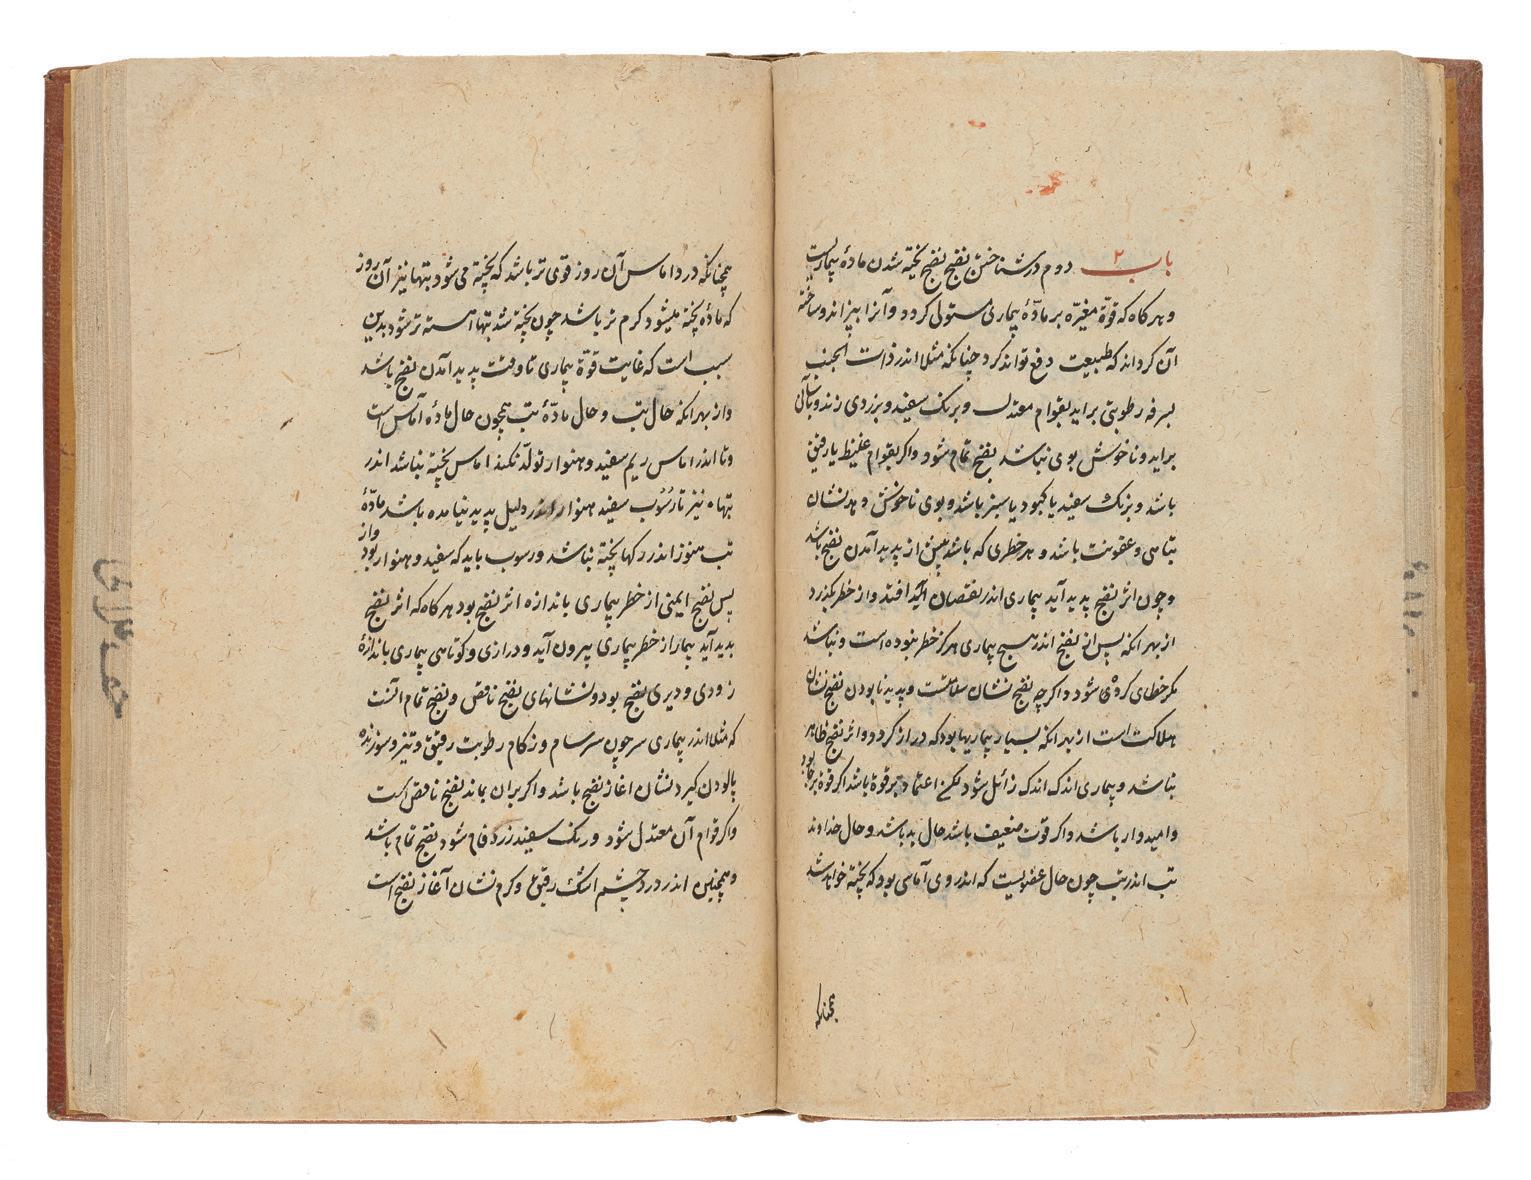 باب ۲ دوم در شناختن نضج نضج پخته شدن مادهٔ بیماریست
و هر کاه که قوّة مغیّره بر مادّهٔ بیماری مستولی کردد و آنرا بپزاند و ساخته
آن کرداند که طبیعت دفع تواند کرد چنانکه مثلا اندر ذات الجنب
بسرفه رطوبتی براید بقوام معتدل و برنک سفید و بزردی زند و بآسانی
براید و ناخوش بوی نباشد نضج تمام شود و اکر بقوام غلیظ یا رقیق
باشد و برنک سفید یا کبود یا سبز باشد و بوی ناخوش دهد نشان
تباهی و عفونت باشد و هر خطری که باشد پیش از پدید آمدن نضج باشد
و چون اثر نضج پدید آید بیماری اندر نقصان افتد و از خطر بکذرد
از بهر انکه پس از نضج اندر هیچ بیماری هرکز خطر نبوده است و نباشد
مکر خطای کرده شود و اکر چه نضج نشان سلامتست و پدید نابودن نضج نشان
هلاکت است از بهر انکه بسیار بیماریها بود که دراز کردد و اثر نضج ظاهر
نباشد و بیماری اندک اندک زائل شود لکن اعتماد بر قوة باشد اکر قوة برجا بود
و امیدوار باشد و اکر قوّت ضعیف باشد حال بد باشد و حال خداوند
تب اندر تب چون حال عضویست که اندر وی آماسی بود که پخته خواهد شد
همچنانکه
همچنانکه درد اماس آن روز قوی تر باشد که پخته می شود تبها نیز آن روز
که مادّه پخته میشود کرم تر باشد چون پخته شد تبها آهسته تر شود بدین
سبب است که غایت قوّة بیماری تا وقت پدید آمدن نضج باشد
و از بهر انکه حال تب و حال مادّهٔ تب همچون حال مادهٔ آماس است
و تا اندر اماس ریم سفید و هموار تولّد نکند اماس پخته نباشد اندر
تبها نیز تا رسُوب سفید هموار اندر دلیل پدید نیامده باشد مادّهٔ
تب هنوز اندر رکها پخته نباشد و رسوب باید که سفید و هموار بود و از
پس نضج ایمنی از خطر بیماری باندازه اثر نضج بود هر کاه که اثر نضج
بدید آید بیمار از خطر بیماری بیرون آید و درازی و کوتاهی بیماری باندازهٔ
زودی و دیری نضج بود و نشانهای نضج ناقص و نضج تمام آنست
که مثلا اندر بیماری سر چون سرسام و زکام رطوبت رقیق و تیز و سوزنده
پالودن کیرد نشان اغاز نضج باشد و اکر بران بماند نضج ناقص است
و اکر قوام آن معتدل شود و رنک سفید زرد فام شود نضج تمام باشد
و همچنین اندر درد چشم اشک رقیق و کرم نشان آغاز نضج است